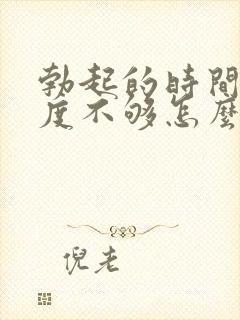 勃起的時間
度不够怎麽
倪老